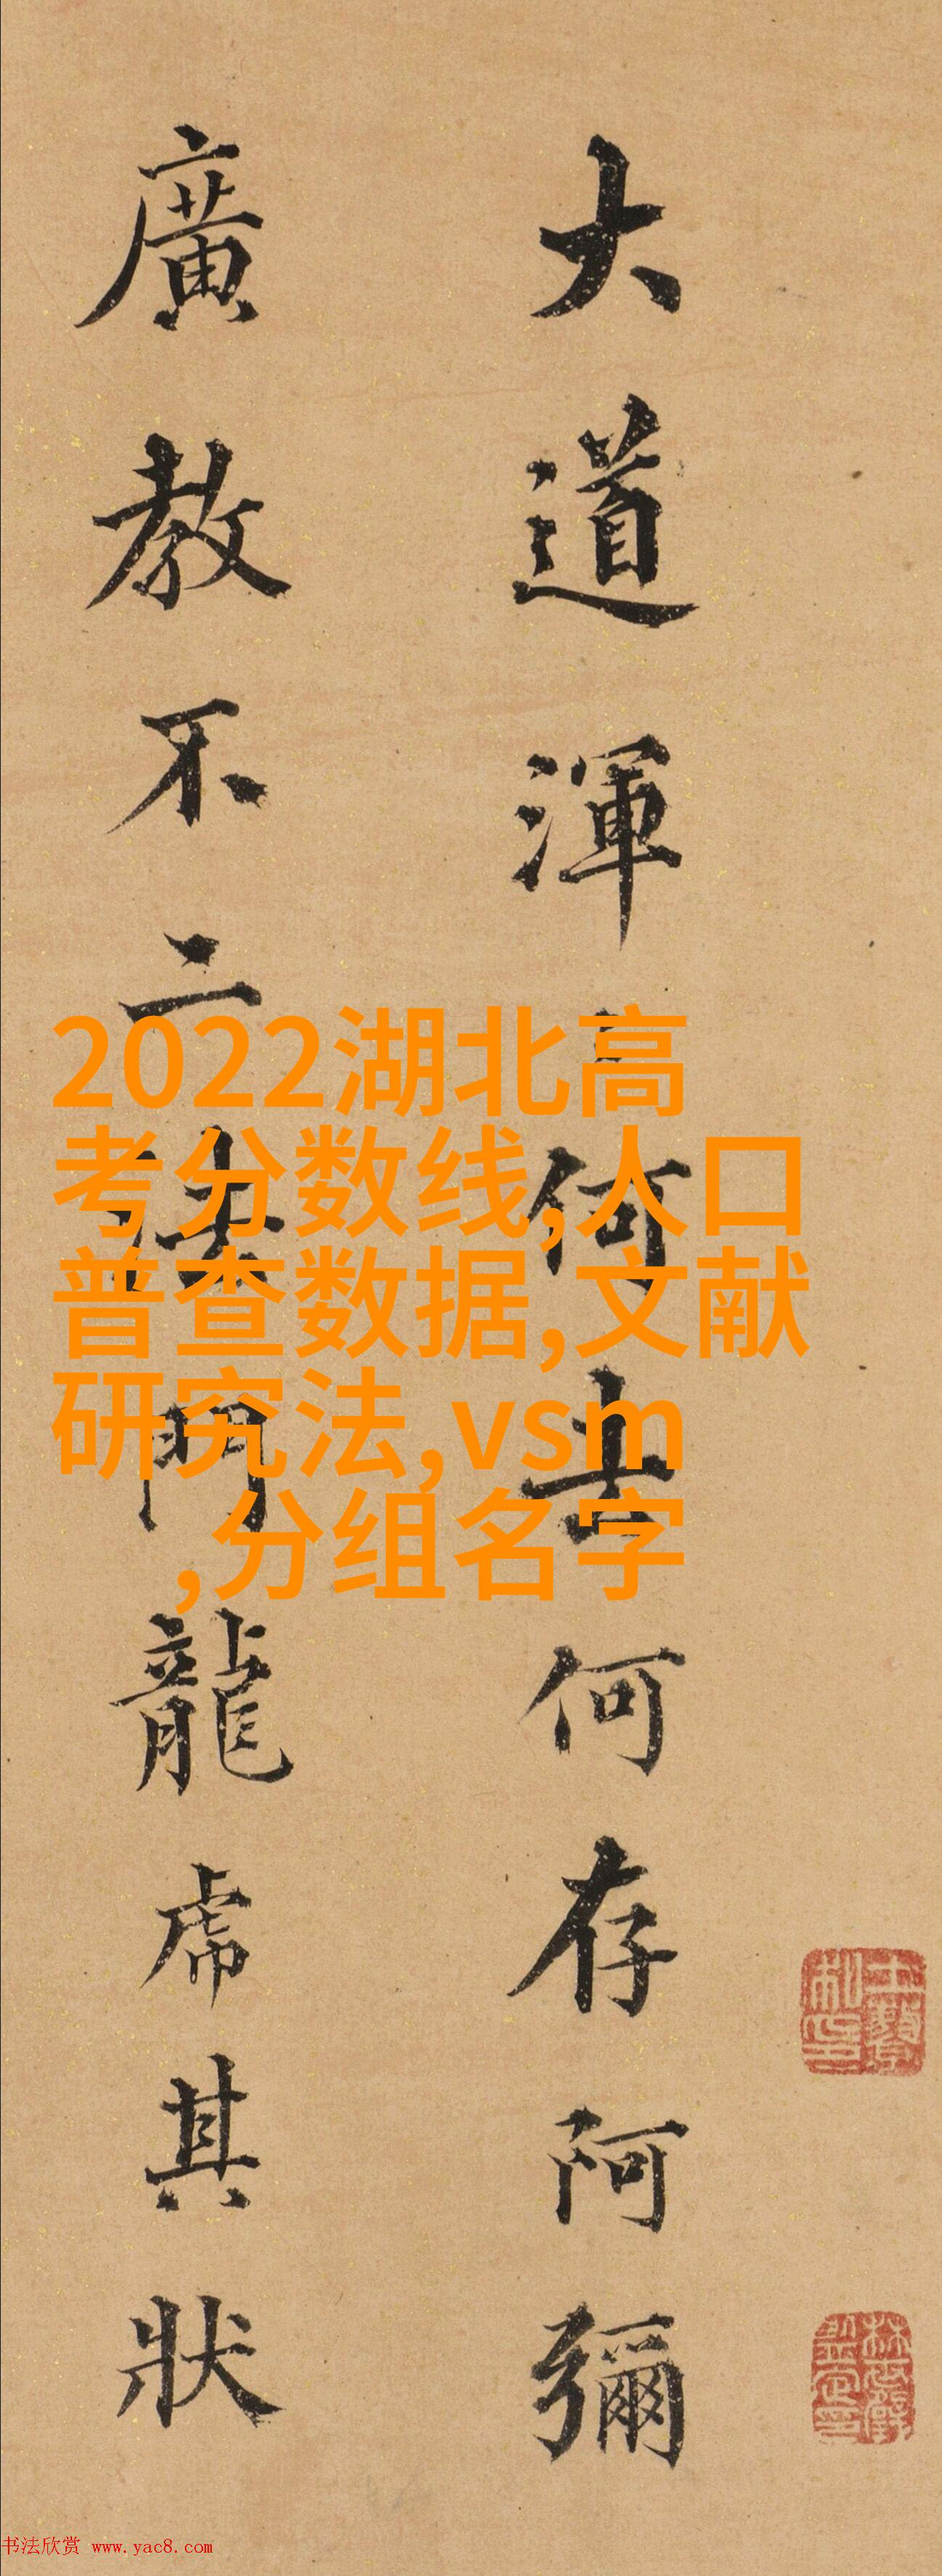 大道渾何去何存阿彌
廣教不二法門龍虎其狀
2022湖北高
考分数线,人口
普查数据,文献
研究法,vsm
,分组名字
书法欣赏 www.yac8.com